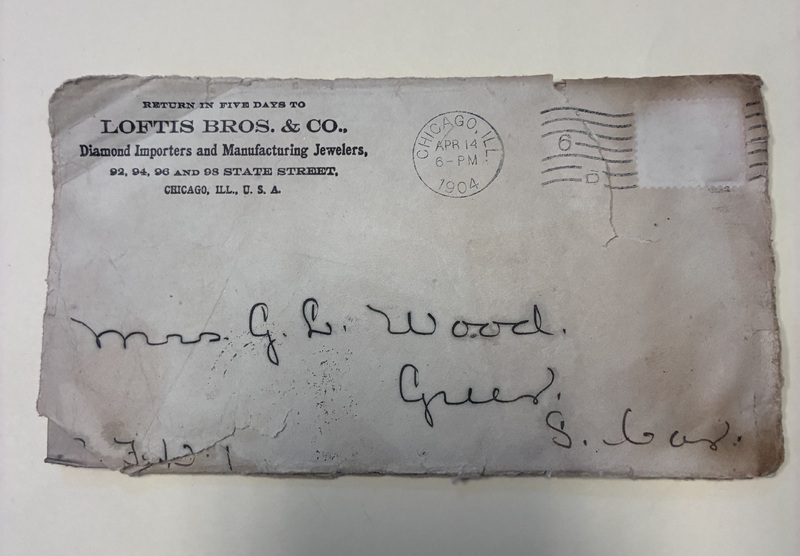 RETURN IN FIVE DAYS TO
LOFTIS BROS. & CO.,
Diamond Importers and Manufacturing Jewelers,
92, 94, 96 AND 98 STATE STREET,
CHICAGO, ILL., U. S. A.
CHICAGO, ILL.
APR 14
6-PM
1904
6
D
Mrs. G. L. Wood.
Greer.
S. Car.